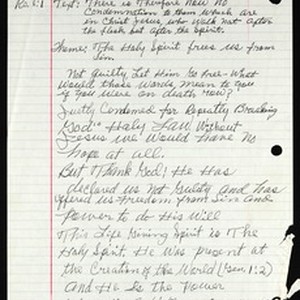 Ro 8:1 Text: There is Therefore Now No
Condemnation to them Which are
in Christ Jesus, who walk not after
the flesh but after the Spirit.
Theme: The Holy Spirit frees us from
Sin
Not Guilty, Let Him Go Free - What
Would those Words mean to You
if You Were on death row?
Justly Condemned for Repeatly Breaking
God's Holy Law Without
Jesus We Would have No
hope at all.
But Thank God! He Has
declared us Not Guilty and has
offered us Freedom from Sin and
Power to do His Will
This Life Giving Spirit is The
Holy Spirit. He Was present at
the Creation of the World (Gen. 1:2)
And He Is the Power